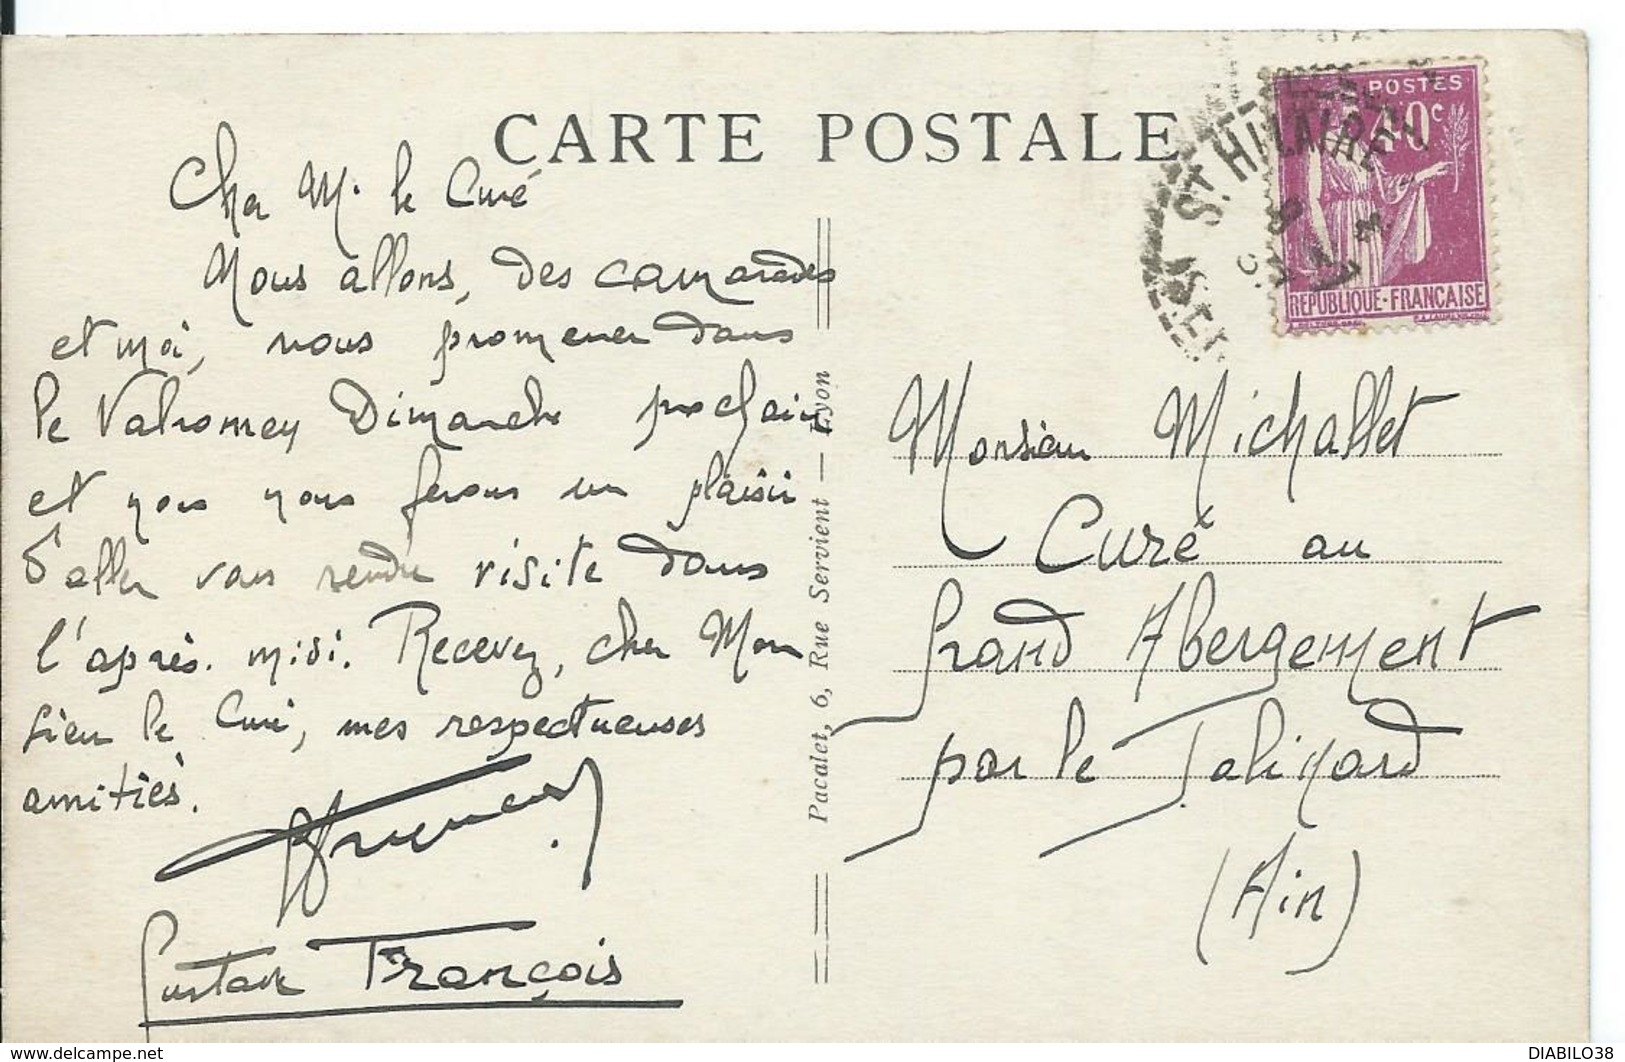 CARTE POSTALE
Cher M. le Curé
Nous allons, des camarades
et moi, nous promener dans
le Valromey Dimanche prochain
et nous nous ferons un plaisir
d'aller vous rendre visite dans
l'après-midi. Recevez, cher Mon
sieur le Curé, mes respectueuses
amitiés.
Gustave François
Pacalet, 6, Rue Servient — Lyon
POSTES
40c
REPUBLIQUE-FRANCAISE
ST HILAIRE
Monsieur Michallet
Curé au
Grand Abergement
par le
(Ain)
delcampe.net
DIABILO38